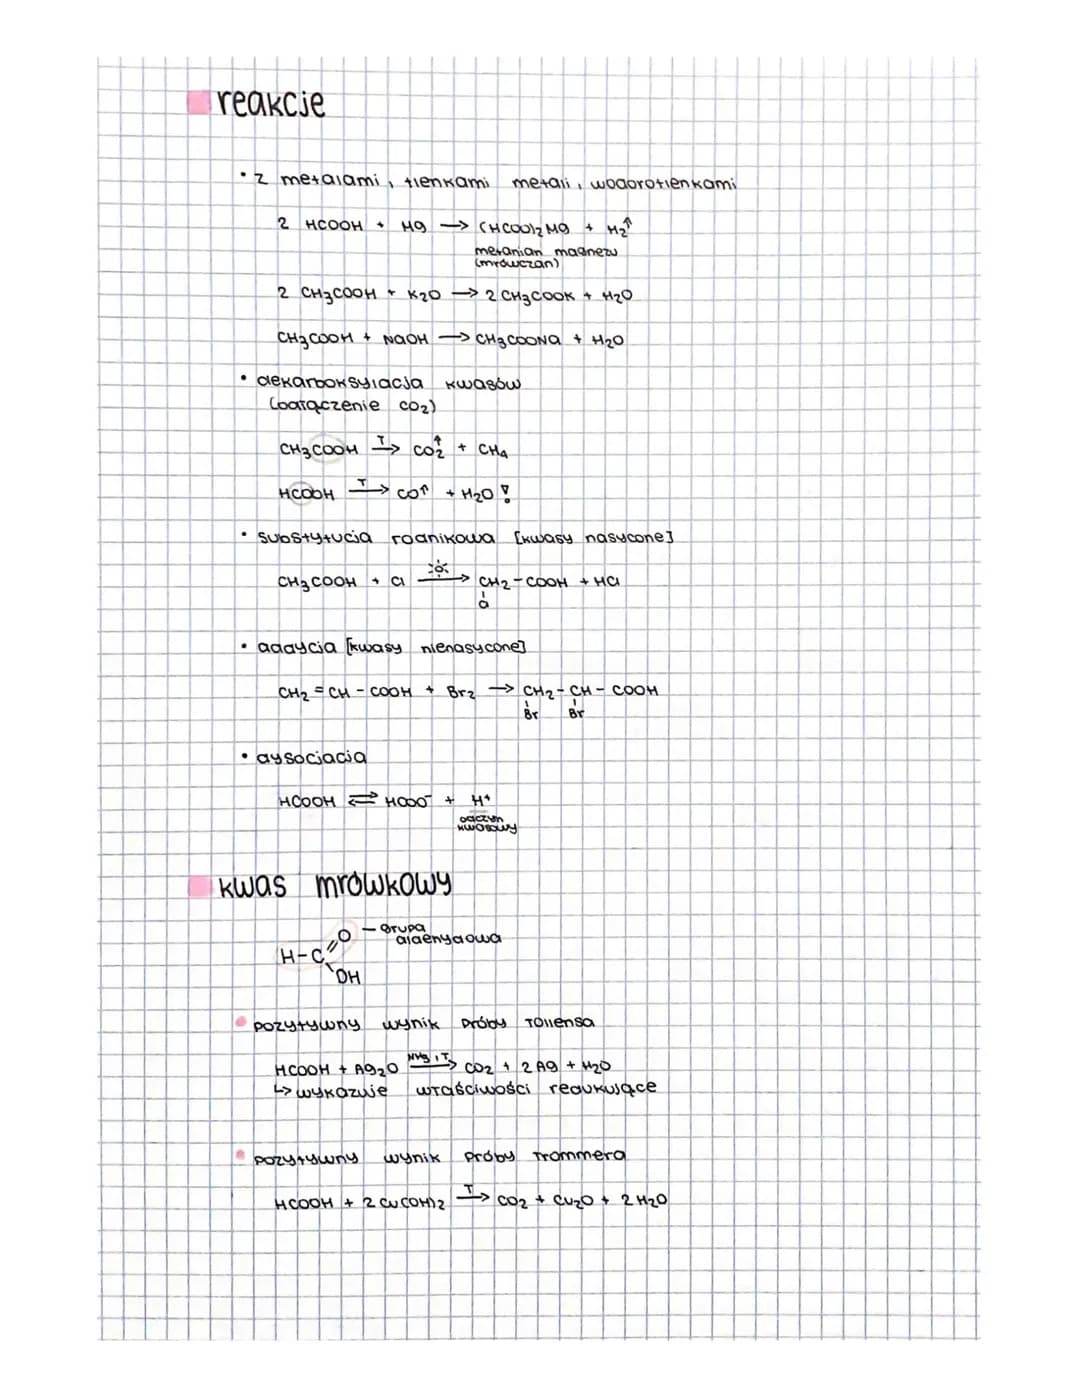 reakcje
• z metalami, tlenkami metali, wodorotlenkami
2 HCOOH + Mg → (HCOO)2 Mg + H2↑
metanian magnezu
(mrówczan)
2 CH3COOH + K2O → 2 CH3COOK + H2O
CH3COOH + NaOH → CH3COONa + H2O
• dekarboksylacja kwasów
(odłączenie CO2)
CH3COOH T→ CO2↑ + CH4
HCOOH T→ CO↑ + H2O !
• substytucja rodnikowa [kwasy nasycone]
CH3COOH + Cl → CH2-COOH + HCl
Cl
• addycja [kwasy nienasycone]
CH2 = CH - COOH + Br2 → CH2 - CH - COOH
Br Br
• dysocjacja
HCOOH ⇌ HCOO⁻ + H⁺
odczyn
kwasowy
kwas mrówkowy
O - grupa
aldehydowa
H-C
OH
• pozytywny wynik próby Tollensa
HCOOH + Ag2O NH3, T→ CO2 + 2 Ag + H2O
↳ wykazuje właściwości redukujące
• pozytywny wynik próby Trommera
HCOOH + 2 Cu(OH)2 T→ CO2 + Cu2O + 2 H2O